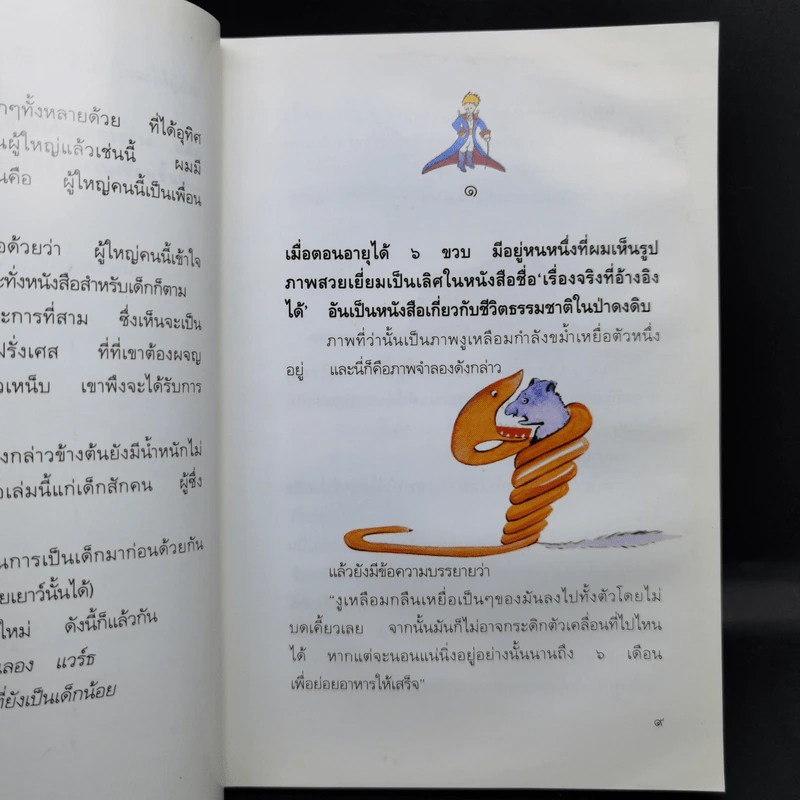 กๆทั้งหลายด้วย ที่ได้อุทิศ
นผู้ใหญ่แล้วเช่นนี้ ผมมี
นคือ ผู้ใหญ่คนนี้เป็นเพื่อน
อด้วยว่า ผู้ใหญ่คนนี้เข้าใจ
ะทั่งหนังสือสำหรับเด็กก็ตาม
ะการที่สาม ซึ่งเห็นจะเป็น
ฝรั่งเศส ที่ที่เขาต้องผจญ
วเหน็บ เขาพึงจะได้รับการ
งกล่าวข้างต้นยังมีน้ำหนักไม่
อเล่มนี้แก่เด็กสักคน ผู้ซึ่ง
นการเป็นเด็กมาก่อนด้วยกัน
ยเยาว์นั้นได้)
ใหม่ ดังนี้ก็แล้วกัน
นลอง แวร์ธ
ที่ยังเป็นเด็กน้อย
๑
เมื่อตอนอายุได้ ๖ ขวบ มีอยู่หนหนึ่งที่ผมเห็นรูป
ภาพสวยเยี่ยมเป็นเลิศในหนังสือชื่อ‘เรื่องจริงที่อ้างอิง
ได้’ อันเป็นหนังสือเกี่ยวกับชีวิตธรรมชาติในป่าดงดิบ
ภาพที่ว่านั้นเป็นภาพงูเหลือมกำลังขม้ำเหยื่อตัวหนึ่ง
อยู่ และนี่ก็คือภาพจำลองดังกล่าว
แล้วยังมีข้อความบรรยายว่า
“งูเหลือมกลืนเหยื่อเป็นๆของมันลงไปทั้งตัวโดยไม่
บดเคี้ยวเลย จากนั้นมันก็ไม่อาจกระดิกตัวเคลื่อนที่ไปไหน
ได้ หากแต่จะนอนแน่นิ่งอยู่อย่างนั้นนานถึง ๖ เดือน
เพื่อย่อยอาหารให้เสร็จ”
๙